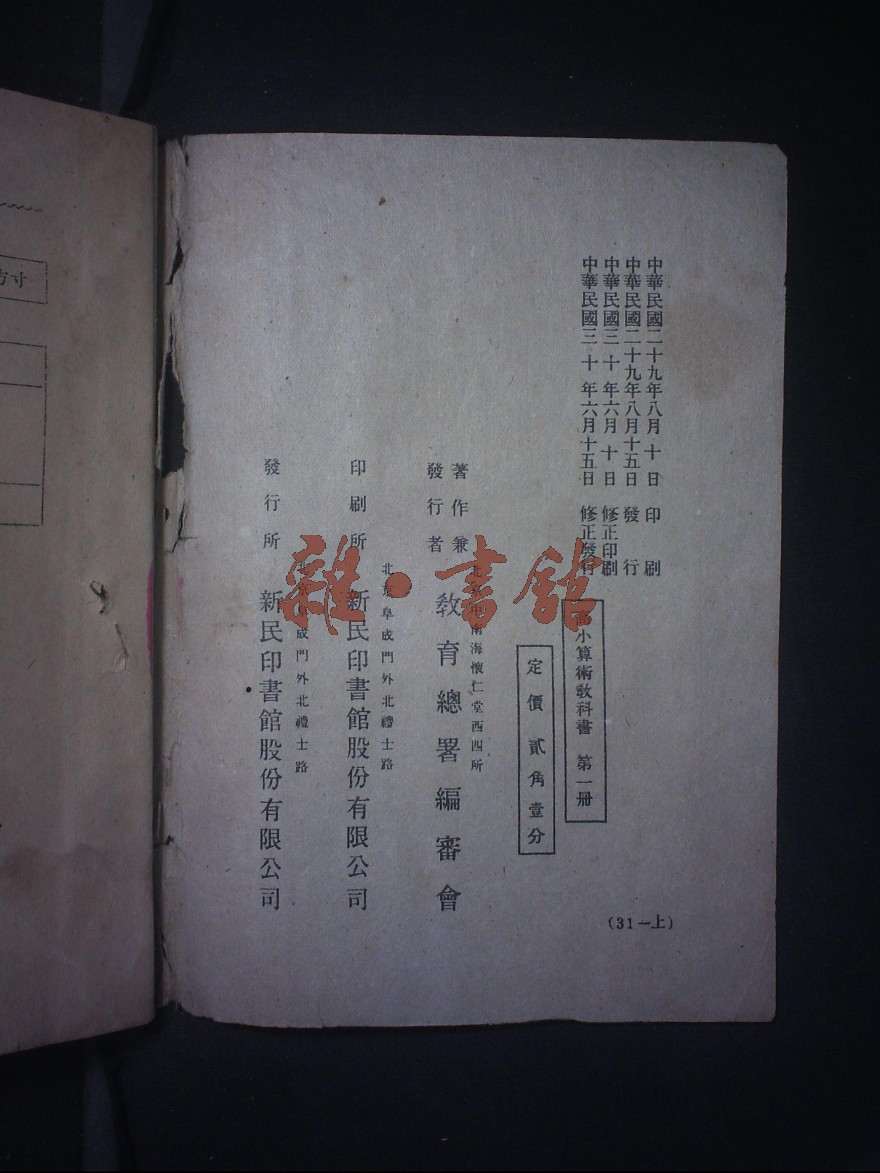 中華民國二十九年八月十日　印刷
中華民國二十九年八月十五日　發行
中華民國三十年六月十日　修正印刷
中華民國三十年六月十五日　修正發行
高小算術教科書　第一冊
定價貳角壹分
南海懷仁堂西四所
著作兼
發行者
教育總署編審會
北京阜成門外北禮士路
印刷所　新民印書館股份有限公司
成門外北禮士路
發行所　新民印書館股份有限公司
(31－上)
雜·書館
方寸